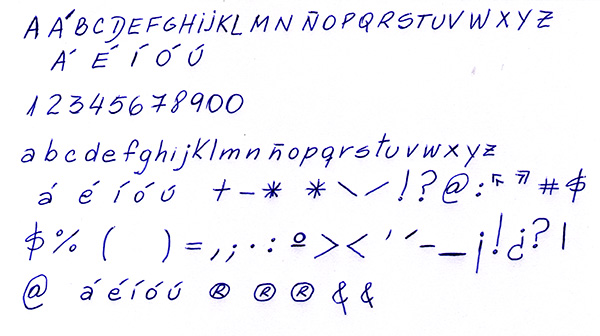 A Á B C D E F G H i J K L M N Ñ O P Q R S T U V W X Y Z
Á É Í Ó Ú
1 2 3 4 5 6 7 8 9 0 0
a b c d e f g h i j k l m n ñ o p q r s t u v w x y z
á é í ó ú + - * * \ / ! ? @ : " " # $
$ % ( ) = , ; · : º > < ' ´ - _ ¡ ! ¿ ? |
@ á é í ó ú ® ® ® & &